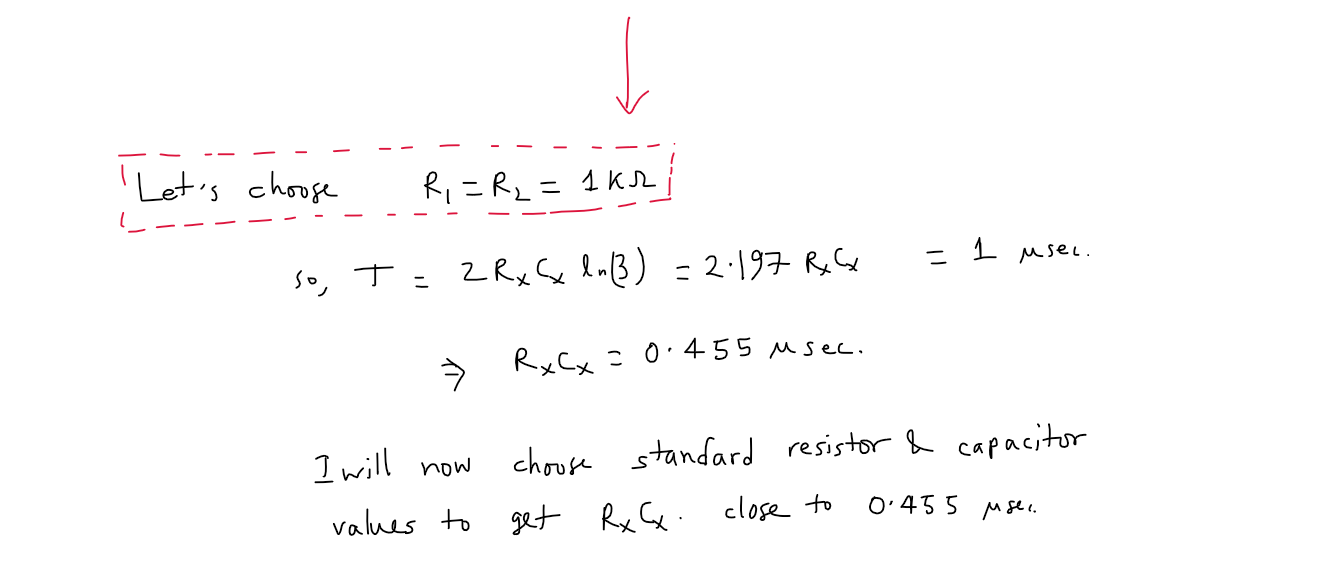 Let's choose R₁ = R₂ = 1 KΩ
so, T = 2 RₓCₓ ln(3) = 2.197 RₓCₓ = 1 μsec.
⇒ RₓCₓ = 0.455 μsec.
I will now choose standard resistor & capacitor
values to get RₓCₓ. close to 0.455 μsec.